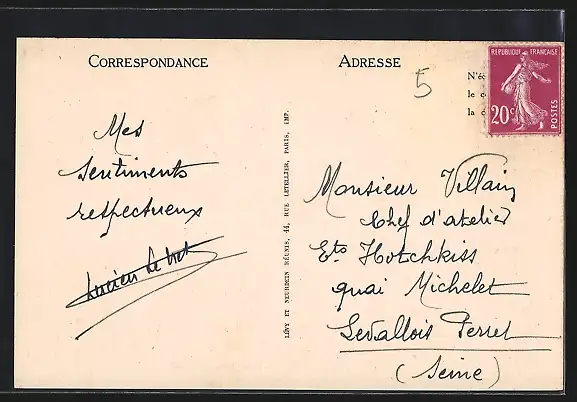 CORRESPONDANCE
ADRESSE
5
N'éc
le c
la c
REPUBLIQUE FRANÇAISE
20c
POSTES
Mes
sentiments
respectueux
Lucien Le
LÉVY ET NEURDEIN RÉUNIS, 44, RUE LETELLIER, PARIS, IMP.
Monsieur Villain
Chef d'atelier
Ets Hotchkiss
quai Michelet
Levallois Perret
(Seine)